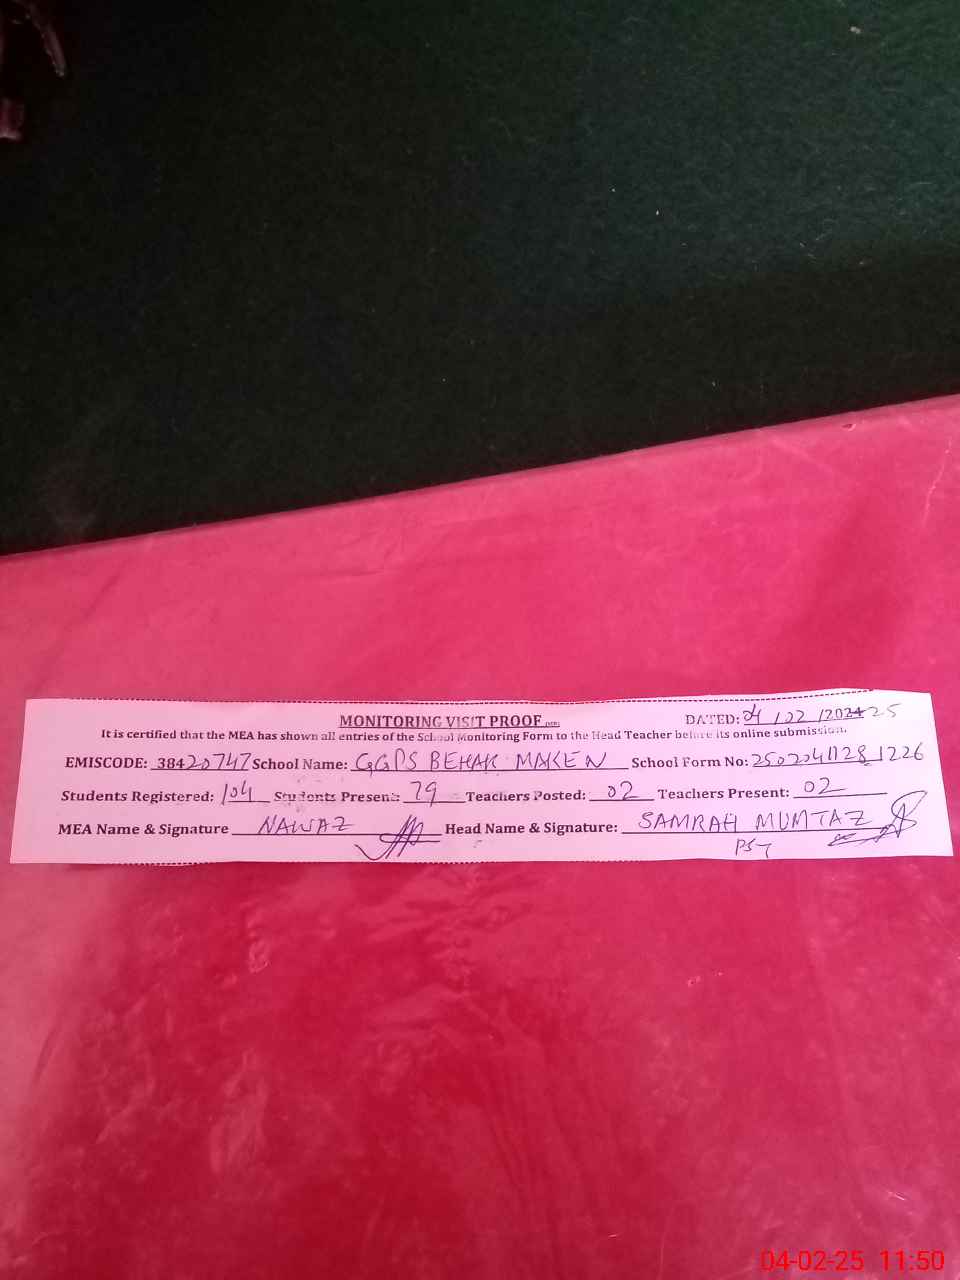 MONITORING VISIT PROOF
DATED: 04/02/2024 25
It is certified that the MEA has shown all entries of the School Monitoring Form to the Head Teacher before its online submission.
EMISCODE: 38420747 School Name: GGPS BEHAK MAKEN School Form No: 25020411281226
Students Registered: 104 Students Present: 79 Teachers Posted: 02 Teachers Present: 02
MEA Name & Signature NAWAZ Head Name & Signature: SAMRAH MUMTAZ
PST
04-02-25 11:50